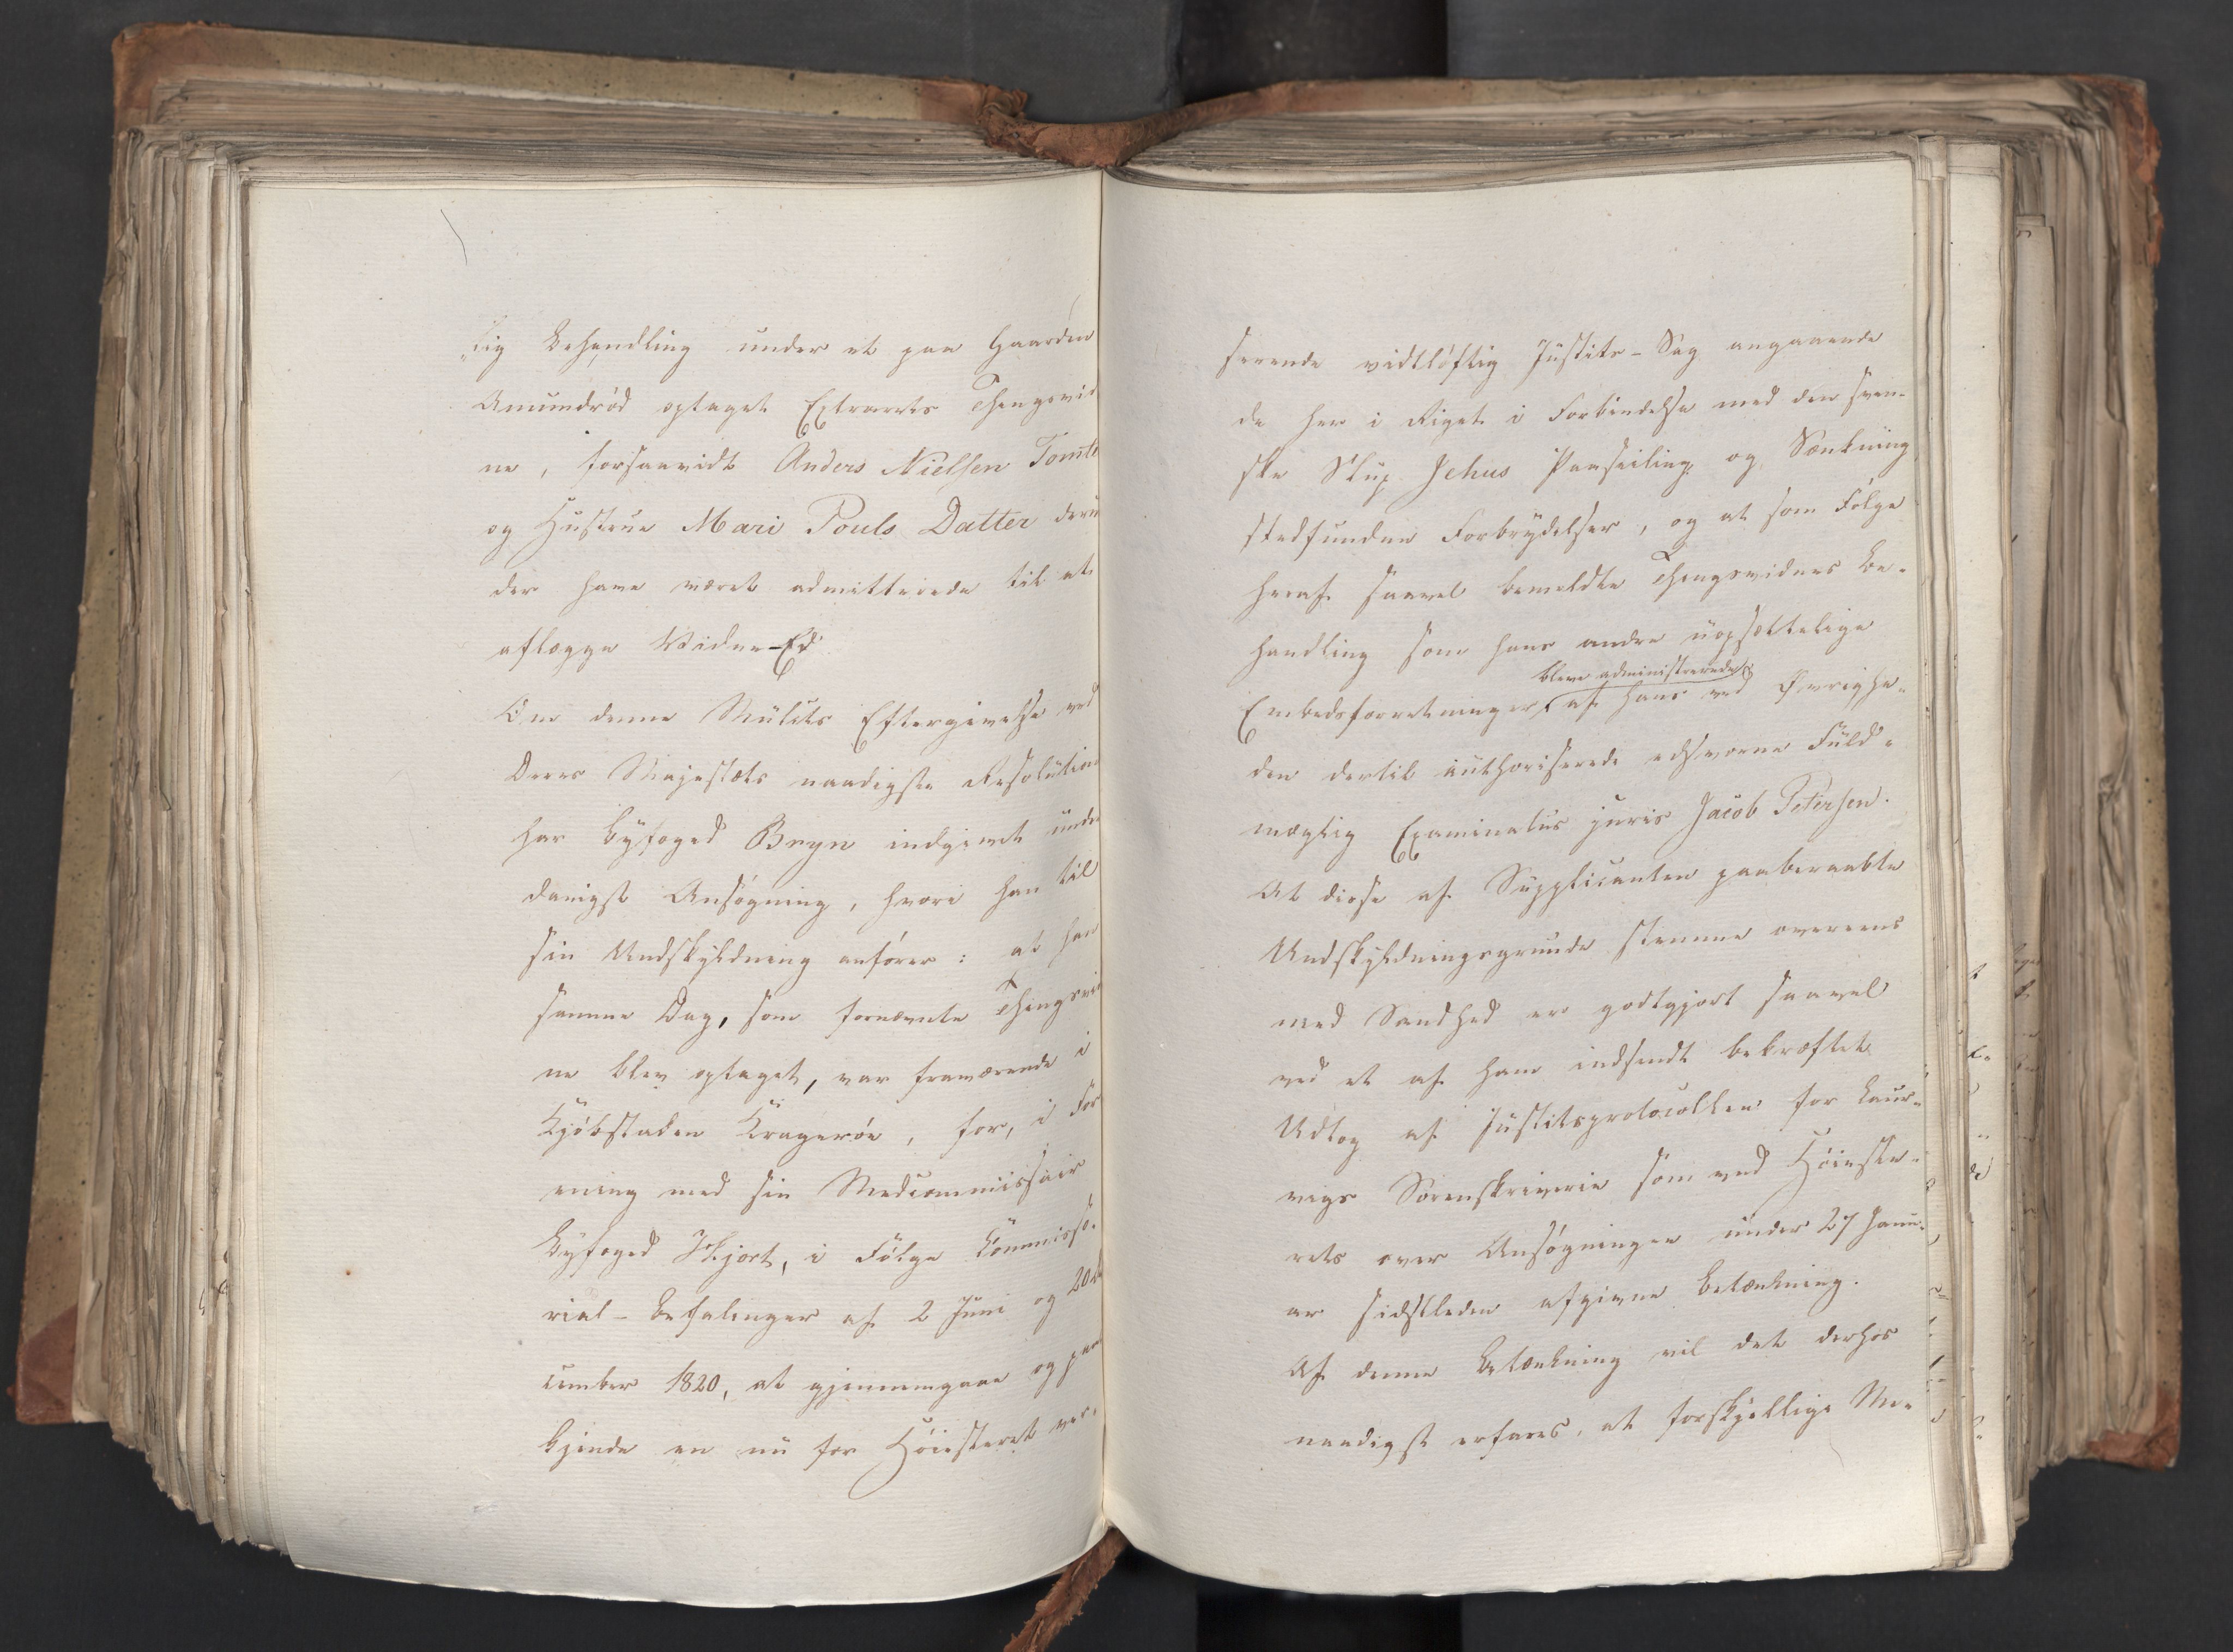 „lig Behandling under et paa Gaarden
Amundrød optaget Extrarets Thingsvid
ne, forsaavidt Anders Nielsen Tomte
og Hustrue Mari Pouls Datter derun
der have været admitterede til at
aflægge Vidne-Ed.
Om denne Mulcts Eftergivelse ved
Deres Majestæts naadigste Resolution
har Byfoged Bryn indgivet under
danigst Ansøgning, hvori han til
sin Undskyldning anfører: at han
samme Dag, som fornævnte Thingsvid
ne blev optaget, var fraværende i
Kjøbstaden Kragerøe, for, i For
ening med sin Medcommissair
Byfoged Hjort, i Følge Commisso-
rial-Befalinger af 2 Juni og 20 De
cember 1820, at gjennemgaae og paa
kjende en nu for Høiesteret ver-
serende vidtløftig Justits-Sag angaaende
de her i Riget i Forbindelse med den sven-
ske Skip Jehus Paaseiling og Sænkning
stedfundne Forbrydelser, og at som Følge
heraf saavel bemeldte Thingsvidnes Be-
handling som hans andre uopsættelige
bleve administrerede
Embedsforretninger, af hans ved Øvrighe-
den dertil authoriserede edsvorne Fuld-
mægtig Examinatus juris Jacob Petersen.
At disse af Supplicanten paaberaabte
Undskyldningsgrunde stemme overeens
med Sandhed er godtgjort saavel
ved et af ham indsendt bekræftet
Udtog af Justitsprotocollen for Laur-
vigs Sorenskriverie som ved Høieste-
rets over Ansøgningen under 27 Janu-
ar sidstleden afgivne Betænkning.
Af denne Betænkning vil det derhos
naadigst erfares, at forskjellige Me-